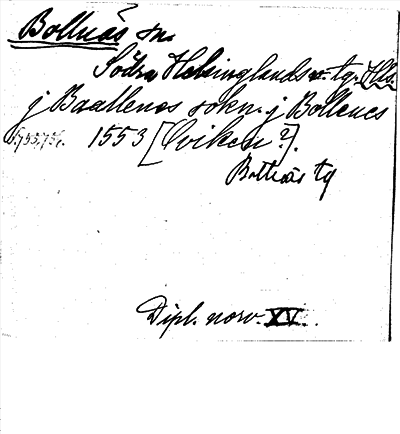 Bollnäs sn.
Södra Helsinglands tg. Hls.
j Baallenos sokn. j Bollenes
1553 [Oviken?].
Bollnäs tg
Dipl. norv. XV.